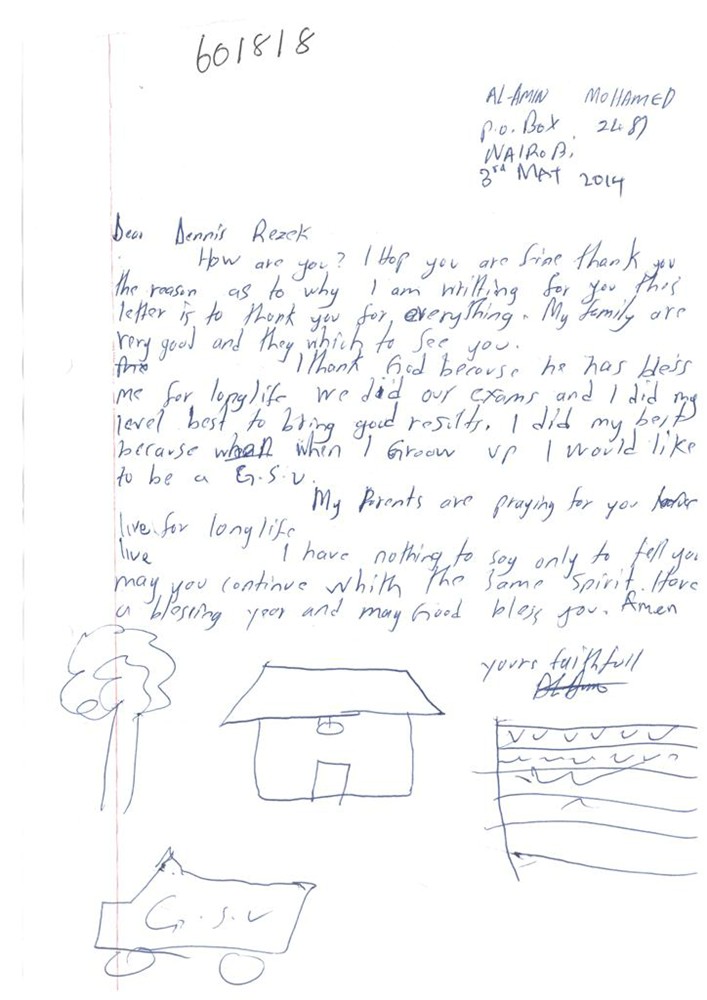 601818
AL-AMIN MOHAMED
P.O. BOX 2487
NAIROBI,
3rd MAY 2014
Dear Dennis Rezek
How are you? I Hop you are fine thank you
the reason as to why I am writting for you this
letter is to thank you for everything. My family are
very good and they which to see you.
I thank God because he has bless
me for longlife we did our exams and I did my
level best to bring good results. I did my best
because when I Groow up I would like
to be a G.S.U.
My Parents are praying for you
live for longlife
live I have nothing to say only to tell you
may you continue whith the same spirit. Have
a blessing year and may Good bless you. Amen
yours faithfull
G.S.U